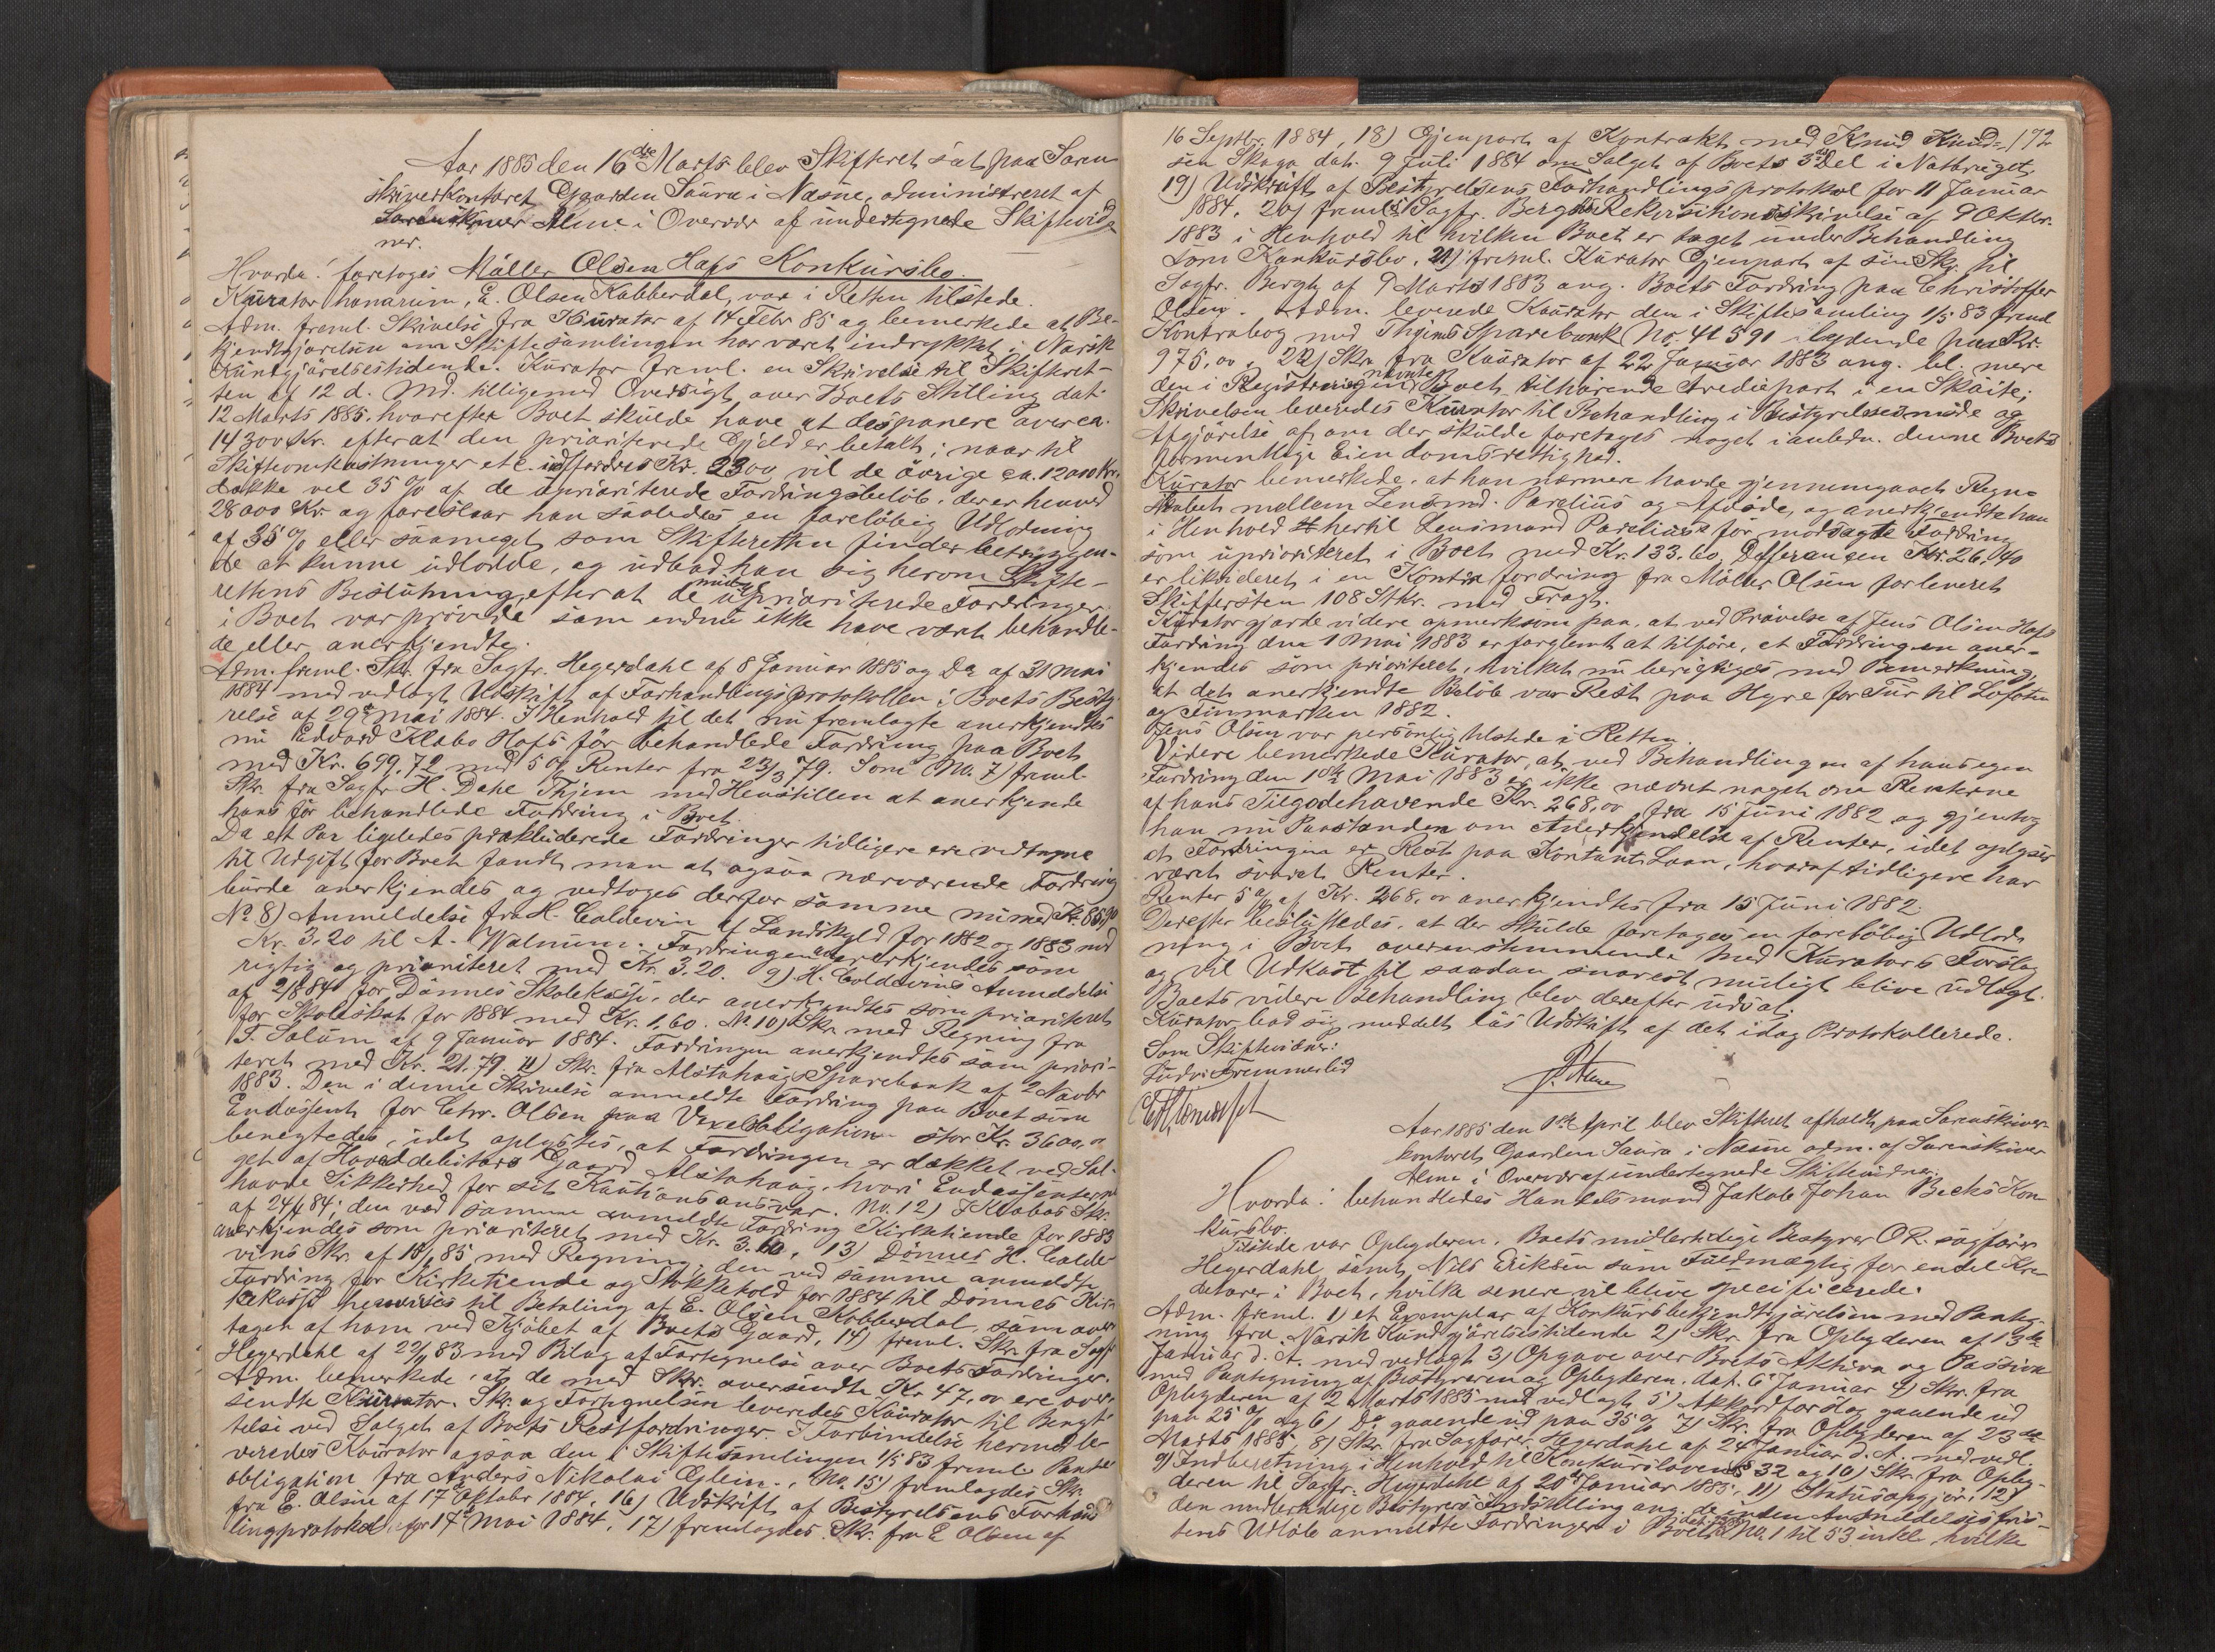 Aar 1885 den 16de Marts blev Skifteret sat paa Soren-
skriverkontoret Gaarden Saura i Næsne, administreret af
Sorenskriver Alme i Overvær af undertegnede Skiftevid-
ner.
Hvorda! foretoges Möller Olsen Hafs Konkursbo.
Kurator honorum, E. Olsen Kobberdal, var i Retten tilstede.
Adm. freml. Skrivelse fra Kurator af 14 Febr 85 og bemerkede at Be-
kjendtgjörelsen om Skiftesamlingen har været indrykket i Norsk
Kundgjörelsestidende. Kurator freml. en Skrivelse til Skifteret-
ten af 12 d. Md. tilligemed Oversigt over Boets Stilling dat.
12 Marts 1885. hvorefter Boet skulde have at disponere over ca.
14300 Kr. efterat den prioriterede Gjeld er betalt; naar til
Skifteomkostninger etc. udfordres Kr. 2300 vil de övrige ca. 12000 Kr.
dække vel 35 % af de uprioriterede Fordringsbelöb, der er henved
28000 Kr. og foreslaar han saaledes en forelöbig Udlodning
af 35 % eller saameget som Skifteretten finder betryggen-
de at kunne udlodde, og udbad han sig herom Skifte-
rettens Beslutning, efterat de mulige uprioriterede Fordringer
i Boet var prövede som endnu ikke have vært behandle-
de eller anerkjendte.
Adm. freml. Skr. fra Sagfr. Hegerdahl af 8 Januar 1885 og Do af 31 Mai
1884 med vedlagt Udskrift af Forhandlingsprotokollen i Boets Besty-
relse af 29de Mai 1884. I Henhold til det nu fremlagte anerkjendtes
nu Edvard Klabo Hafs för behandlede Fordring paa Boet
med Kr. 699.72 med 5 % Renter fra 23/3 79. Som (No. 7) freml.
Skr. fra Sagfr H. Dahl Thjem med Henstillen at anerkjende
hans för behandlede Fordring i Boet.
Da ett Par ligeledes prækluderede Fordringer tidligere ere vedtagne
til Udgift for Boet fandt man at ogsaa nærværende Fordring
burde anerkjendes og vedtoges derfor samme nu med Kr. 85,90
No 8) Anmeldelse fra H. Coldevin af Landskyld for 1882 og 1883 med
Kr. 3.20 til A. Walnum. Fordringen anerkjendes som
rigtig og prioriteret med Kr. 3.20. 9) H. Coldevins Anmeldelse
af 2/8 84 for Dönnes Skolekasse, der anerkjendtes som prioriteret
for Skoleskat for 1884 med Kr. 1,60. No 10) Skr. med Regning fra
T. Solum af 9 Januar 1884. Fordringen anerkjendtes som priori-
teret med Kr. 21,79. 11) Skr. fra Alstahaugs Sparebank af 2 Novbr
1883. Den i denne Skrivelse anmeldte Fordring paa Boet som
Endossent for Chr. Olsen paa Vexelobligation stor Kr. 3600,00
benegtedes, idet oplystes, at Fordringen er dækket ved Sal-
get af Hoveddebitors Gaard Alstahaug, hvori Endossenterne
havde Sikkerhed for sit Kautionsansvar. No. 12) Klabos Skr.
af 24/1 84; den ved samme anmeldte Fordring Kirketiende for 1883
anerkjendes som prioriteret med Kr. 3.60, 13) Dönnes H. Colde-
vins Skr. af 10/1 85 med Regning, den ved samme anmeldte
Fordring for Kirketiende og Stokkehold for 1884 til Dönnes Kir-
kekasse henvises til Betaling af E. Olsen Kobberdal, som over-
tagen af ham ved Kjöbet af Boets Gaard, 14) freml. Skr. fra Sagfr
Hegerdahl af 29/11 83 med Bilag af Fortegnelse over Boets Fordringer.
Adm. bemerkede, at de med Skr. oversendte Kr 47,00 ere over-
sendte Kurator. Skr. og Fortegnelsen leveredes Kurator til Benyt-
telse ved Salget af Boets Restfordringer. I Forbindelse hermed le-
veredes Kurator ogsaa den i Skiftesamlingen 1/5 83 freml. Pante-
obligation fra Anders Nikolai Glein., No. 15) fremlagdes Skr.
fra E. Olsen af 17de Oktobr 1884, 16) Udskrift af Bestyrelsens Forhand-
lingsprotokol for 17de Mai 1884, 17) fremlagdes Skr. fra E Olsen af
172
16 Septbr. 1884, 18) Gjenpart af Kontrakt med Knud Knud-
sen Skaga dat. 9 Juli 1884 om Salget af Boets 3die Del i Notbruget,
19) Udskrift af Bestyrelsens Forhandlingsprotokol for 11 Januar
1884. 20) freml. Sagfr. Berghs Rekvisitionsskrivelse af 9 Oktbr.
1883 i Henhold til hvilken Boet er taget under Behandling
som Konkursbo, 21) freml. Kurator Gjenpart af sin Skr. til
Sagfr. Bergh af 9 Marts 1883 ang. Boets Fordring paa Christoffer
Olsen. Adm. leverede Kurator den i Skiftesamling 1/5 83 freml.
Kontrabog med Thjems Sparebank No. 41591 lydende paa Kr.
975,00, 22) Skr. fra Kurator af 22 Januar 1883 ang. bl. mere
den i Registreringen nævnte Boet tilhörende Trediepart i en Skøite;
Skrivelsen leveredes Kurator til Behandling i Bestyrelsesmöde og
Afgjörelse af om der skulde foretages noget i anledn. denne Boets
formentlige Eiendomsrettighed.
Kurator bemerkede, at han nærmere havde gjennemgaaet Regn-
skabet mellem Lensmd. Parelius og Afdöde, og anerkjendte han
i Henhold hertil Lensmand Parelius's för modsagte Fordring
som uprioriteret i Boet med Kr. 133.60. Differansen Kr. 26,40
er likvideret i en Kontra fordring fra Möller Olsen for leveret
Skiffersten 108 Stkr. med Fragt.
Kurator gjorde videre opmerksom paa, at ved Prövelse af Jens Olsen Hafs
Fordring den 1 Mai 1883 er forglemt at tilföre, et Fordringen aner-
kjendes som prioriteret, hvilket nu berigtiges med Bemerkning
at det anerkjendte Belöb var Rest paa Hyre for Tur til Lofoten
og Finmarken 1882.
Jens Olsen var personlig tilstede i Retten.
Videre bemerkede Kurator, at ved Behandlingen af hans egen
Fordring den 1ste Mai 1883 er ikke nævnt noget om Renterne
af hans Tilgodehavende Kr. 268,00 fra 15 Juni 1882 og gjentog
han nu Paastanden om Anerkjendelse af Renter, idet oplyses
at Fordringen er Rest paa Kontant Laan, hvoraf tidligere har
været svaret Renter.
Renter 5 % af Kr. 268,00 anerkjendtes fra 15 Juni 1882.
Derefter besluttedes, at der skulde foretages en forelöbig Udlod-
ning i Boet overensstemmende med Kurators Forslag
og vil Udkast til saadan snarest muligt blive udlagt.
Boets videre Behandling blev derefter udsat.
Kurator bad sig meddelt lös Udskrift af det idag Protokollerede.
Som Skiftevidner:
Ludv. Fremmerlid
P. Alme
Aar 1885 den 1ste April blev Skifteret afholdt paa Sorenskriver-
kontoret Gaarden Saura i Næsne adm. af Sorenskriver
Alme i Overvær af undertegnede Skiftevidner.
Hvorda: behandledes Handelsmand Jakob Johan Becks Kon-
kursbo.
Tilstede var Opbyderen, Boets midlertidige Bestyrer O.R. sagförer
Hegerdahl samt Nils Eriksen som Fuldmægtig for endel Kre-
ditorer i Boet, hvilke senere vil blive specificerede.
Adm. freml. 1) et Exemplar af Konkursbekjendtgjörelsen med Paateg-
ning fra Norsk Kundgjörelsestidende 2) Skr. fra Opbyderen af 13de
Januar d. A. med vedlagt 3) Opgave over Boets Aktiva og Passiva
med Paategning af Bestyreren og Opbyderen. dat. 6 Januar 4) Skr. fra
Opbyderen af 2 Marts 1885 med vedlagt 5) Akkordforslag gaaende ud
paa 25 % og 6) Do gaaende ud paa 35 % 7) Skr. fra Opbyderen af 23de
Marts 1885, 8) Skr. fra Sagförer Hegerdahl af 24 Januar d. A. med vedl.
9) Indberetning i Henhold til Konkurslovens § 32 og 10) Skr. fra Opby-
deren til Sagfr. Hegerdahl af 20de Januar 1885, 11) Statusopgjör, 12)
den midlertidige Bestyrers Indstilling ang. de inden Anmeldelsesfris-
tens Udlöb anmeldte Fordringer i Boet No. 1 til 53 inkl. hvilke